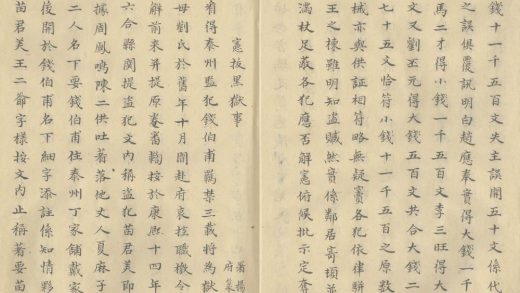 錢十一千五百文失主誤開五十文係代
之誤俱覆説明白趙應奉實得大錢一千
馬二才得小錢一千五百文李三旺得大
文又劉丕元得大錢五百文共合大錢二
七十五文恰符小錢十一千五百之原數
械亦與供証相符略無疑竇各犯依律駢
王之棟雖明知盜贓然實係鄰居寄頓並
滿杖足蔽各犯應否解憲俯候批示定奪
憲披黑獄事
署揚
府篆
看得泰州監犯錢伯甫羈禁三載將為獄
母劉氏於舊年十月間赴府哀控職檄令
解前來并提原卷按於康熙十四年
六合縣関提盜犯文內稱盜犯苗君美即
據周鳳鳴陳二供吐著落地丈人夏麻子
二人名下要錢伯甫住泰州丁家舖戴家
後開於錢伯甫名下細字添註係知情夥
苗君美王二爺字様按文內止稱著要苗